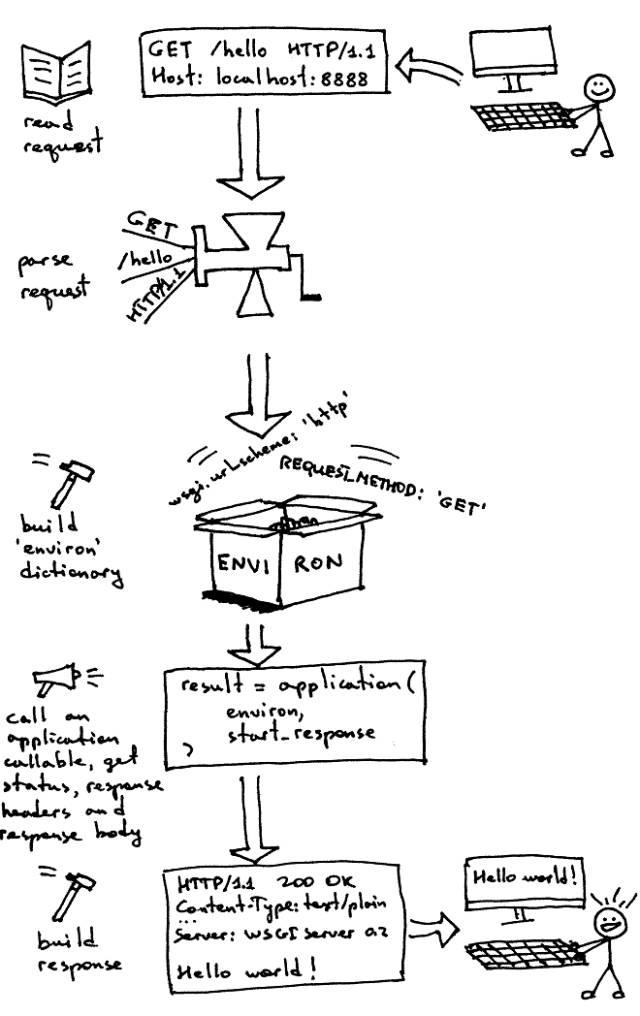 GET /hello HTTP/1.1
Host: localhost:8888
read
request
GET
/hello
HTTP/1.1
parse
request
wsgi.url_scheme: 'http'
REQUEST_METHOD: 'GET'
build
'environ'
dictionary
ENVIRON
result = application(
environ,
start_response
)
call an
application
callable, get
status, response
headers and
response body
HTTP/1.1 200 OK
Content-Type: text/plain
...
Server: WSGIServer 0.2
Hello world!
build
response
Hello world!